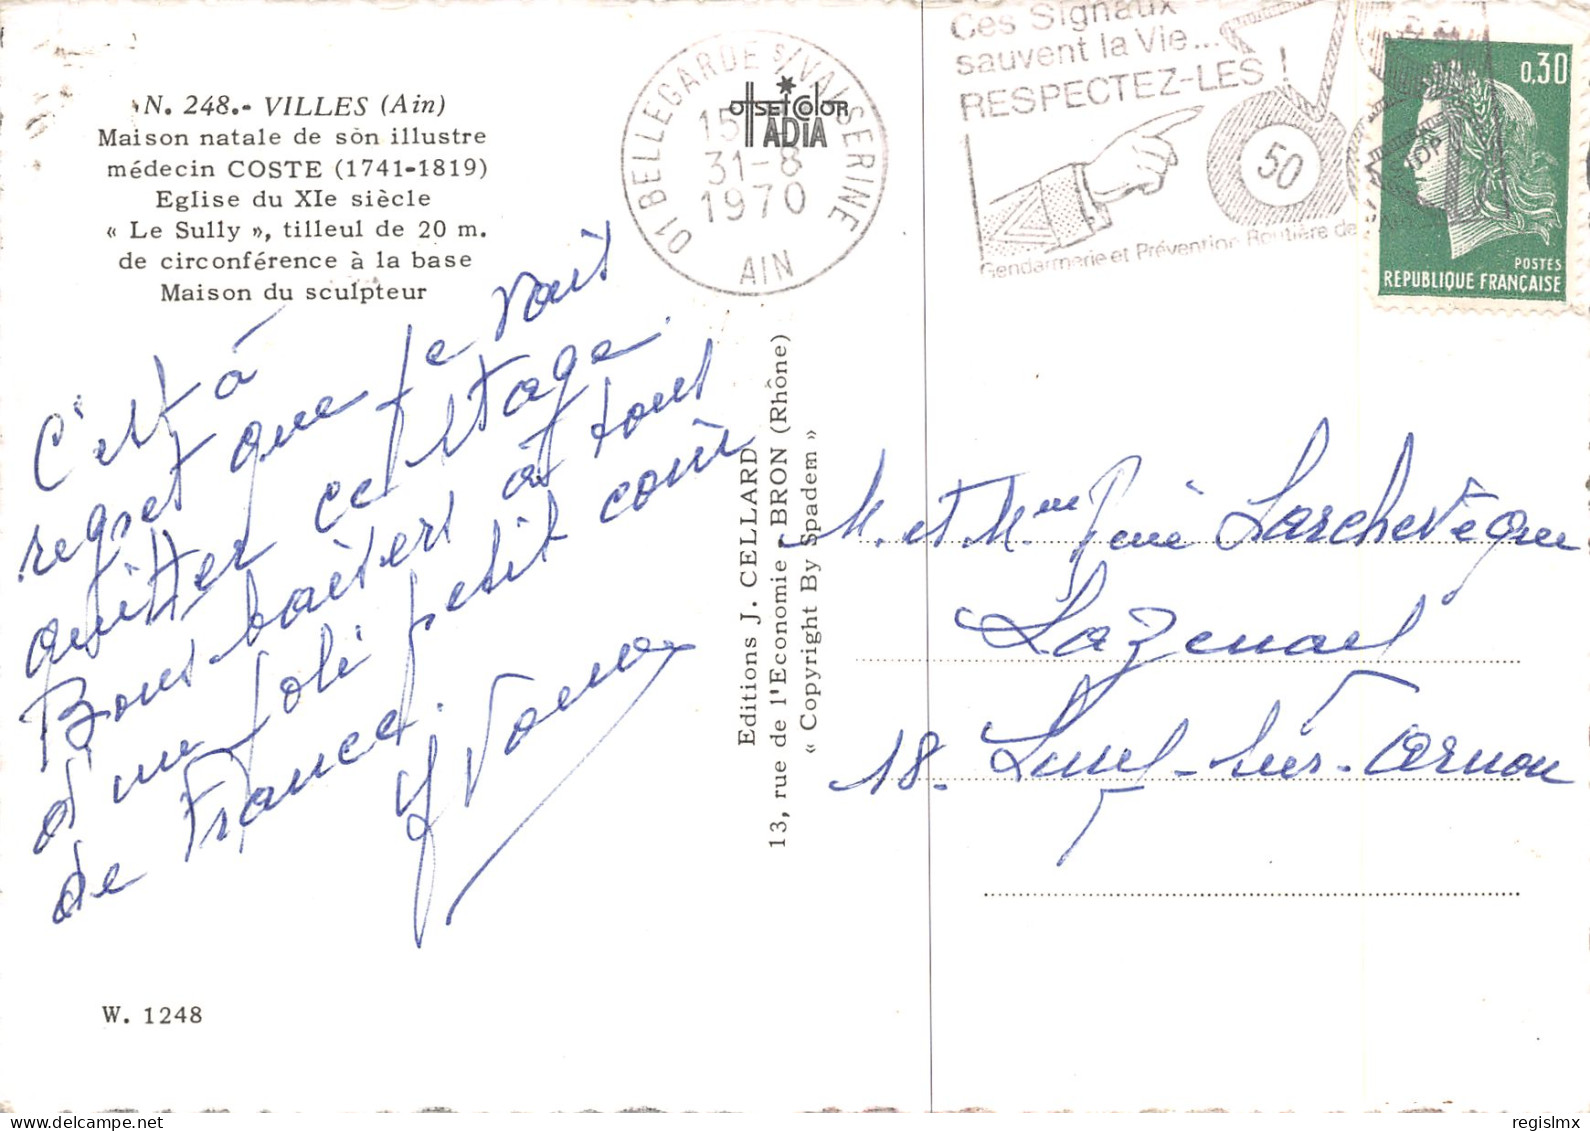 N. 248.- VILLES (Ain)
Maison natale de son illustre
médecin COSTE (1741-1819)
Eglise du XIe siècle
« Le Sully », tilleul de 20 m.
de circonférence à la base
Maison du sculpteur
C'est à
regret que je vais
quitter cet étage
Bons baisers à tous
d'un joli petit coin
de France.
Yvonne
W. 1248
01 BELLEGARDE S/VALSERINE
15
31-8
1970
AIN
offset color
ADIA
Editions J. CELLARD
13, rue de l'Economie, BRON (Rhône)
« Copyright By Spadem »
Ces Signaux
sauvent la Vie...
RESPECTEZ-LES !
50
Gendarmerie et Prévention Routière de
0,30
POSTES
REPUBLIQUE FRANÇAISE
M. et Mme René Larchevêque
Lazenay
18. Lury-sur-Arnon
regislmx